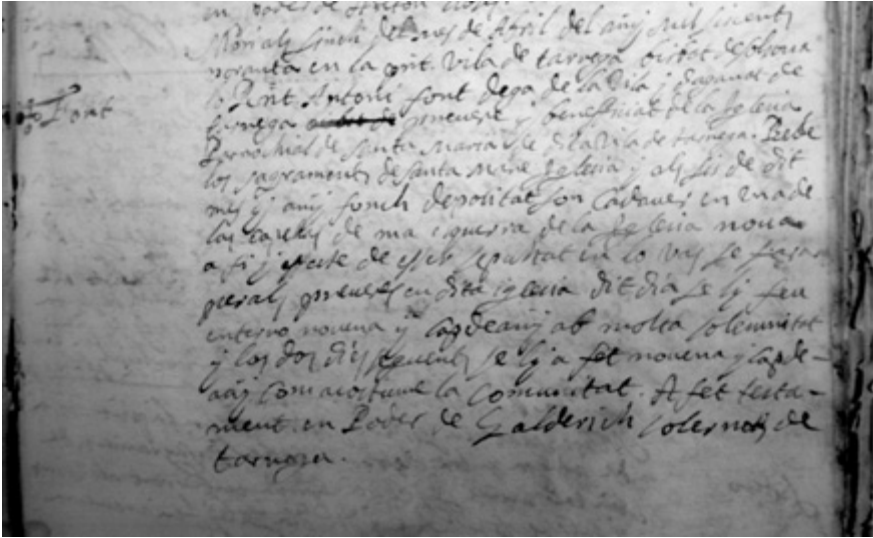 en poder de Anton
Mori als sinch del mes de Abril del any mil siscents
noranta en la pnt. Vila de tarrega bisbat de solsona
lo Rnt. Antoni font dega de la Vila y deganat de
tarrega prevere y benefficiat de la Iglesia
Parrochial de Santa Maria de dita Vila de tarrega. Rebe
los sagraments de Santa Mare Iglesia y als sis de dit
mes y any fonch depositat son Cadaver en una de
las capelas de ma esquerra de la Iglesia nova
a fi y efecte de esser sepultat en lo vas se fara
per als preveres en dita iglesia dit dia se li feu
enterro novena y Capdeany ab molta solemnitat
y los dos dies seguents se li a fet novena y cap de-
any com acostuma la Comunitat. A fet testa-
ment en Poder de Galderich solernou de
tarrega.
Font